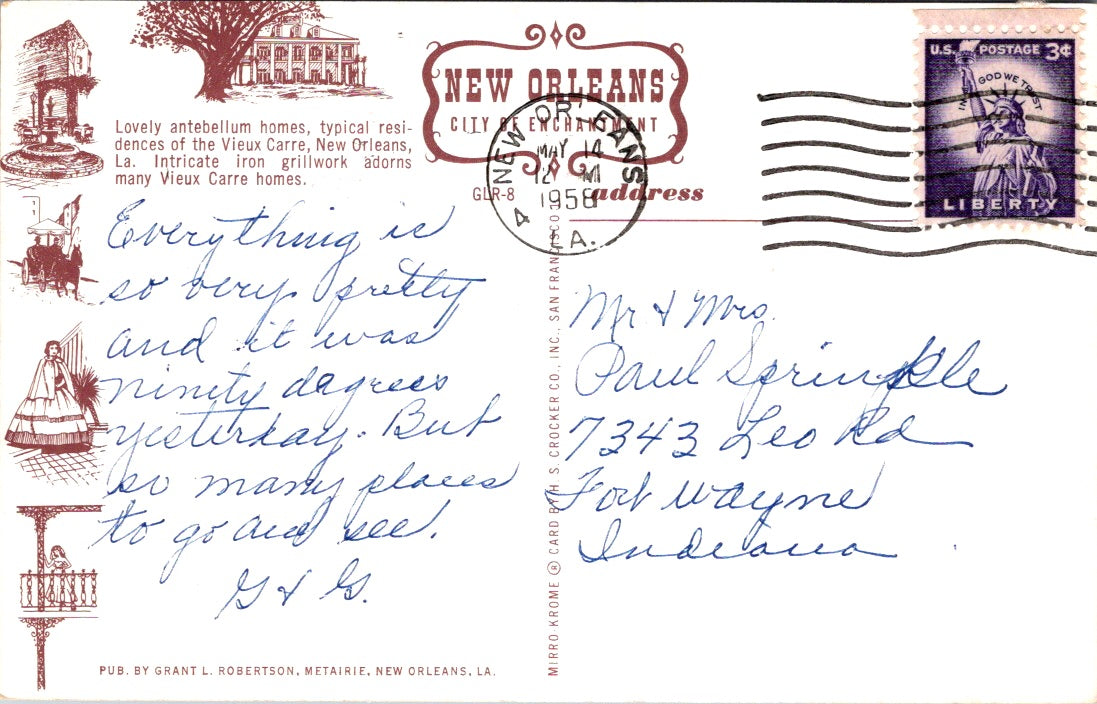 NEW ORLEANS
CITY OF ENCHANTMENT
Lovely antebellum homes, typical resi-
dences of the Vieux Carre, New Orleans,
La. Intricate iron grillwork adorns
many Vieux Carre homes.
GLR-8
address
NEW ORLEANS
MAY 14
12 M
1958
LA.
4
U.S. POSTAGE 3¢
IN GOD WE TRUST
LIBERTY
Everything is
so very pretty
and it was
ninity dagrees
yesterday. But
so many places
to go and see.
G & G.
Mr & Mrs.
Paul Sprinkle
7343 Leo Rd
Fort Wayne
Indiana
MIRRO-KROME ® CARD BY H. S. CROCKER CO., INC., SAN FRANCISCO
PUB. BY GRANT L. ROBERTSON, METAIRIE, NEW ORLEANS, LA.